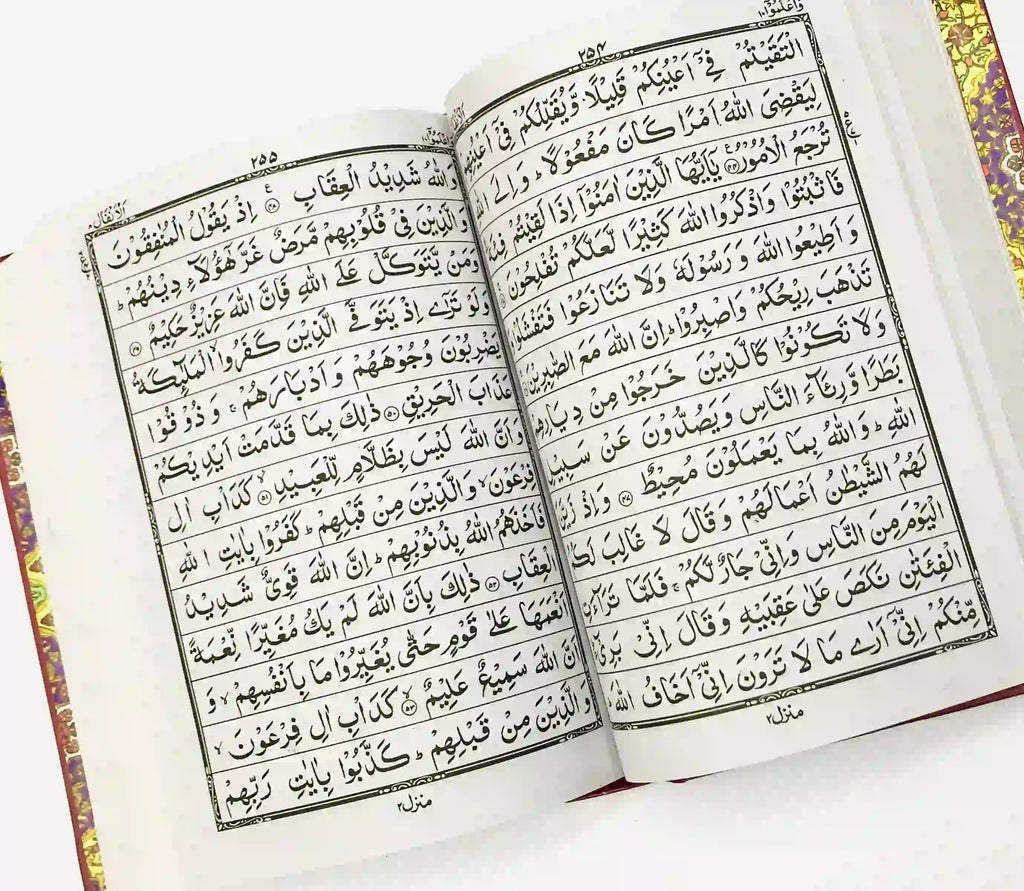 وَاعْلَمُوْۤا ١٠
٢٥٤
الْتَقَيْتُمْ فِيْۤ اَعْيُنِكُمْ قَلِيْلًا وَّيُقَلِّلُكُمْ فِيْۤ اَعْيُنِهِمْ
لِيَقْضِيَ اللّٰهُ اَمْرًا كَانَ مَفْعُوْلًا ؕ وَ اِلَى اللّٰهِ
تُرْجَعُ الْاُمُوْرُ ﴿۴۴﴾ يٰۤاَيُّهَا الَّذِيْنَ اٰمَنُوْۤا اِذَا لَقِيْتُمْ فِئَةً
فَاثْبُتُوْا وَاذْكُرُوا اللّٰهَ كَثِيْرًا لَّعَلَّكُمْ تُفْلِحُوْنَ
وَ اَطِيْعُوا اللّٰهَ وَ رَسُوْلَهٗ وَلَا تَنَازَعُوْا فَتَفْشَلُوْا
تَذْهَبَ رِيْحُكُمْ وَ اصْبِرُوْا ؕ اِنَّ اللّٰهَ مَعَ الصّٰبِرِيْنَ
وَلَا تَكُوْنُوْا كَالَّذِيْنَ خَرَجُوْا مِنْ دِيَارِهِمْ
بَطَرًا وَّ رِئَآءَ النَّاسِ وَ يَصُدُّوْنَ عَنْ سَبِيْلِ
اللّٰهِ ؕ وَ اللّٰهُ بِمَا يَعْمَلُوْنَ مُحِيْطٌ ﴿۴۷﴾ وَ اِذْ زَيَّنَ
لَهُمُ الشَّيْطٰنُ اَعْمَالَهُمْ وَ قَالَ لَا غَالِبَ لَكُمُ
الْيَوْمَ مِنَ النَّاسِ وَ اِنِّيْ جَارٌ لَّكُمْ ۚ فَلَمَّا تَرَآءَتِ
الْفِئَتٰنِ نَكَصَ عَلٰى عَقِبَيْهِ وَ قَالَ اِنِّيْ بَرِيْٓءٌ
مِّنْكُمْ اِنِّيْۤ اَرٰى مَا لَا تَرَوْنَ اِنِّيْۤ اَخَافُ اللّٰهَ
منزل ٢
٢٥٥
اَلْاَنْفَال
وَ اللّٰهُ شَدِيْدُ الْعِقَابِ ﴿۴۸﴾ اِذْ يَقُوْلُ الْمُنٰفِقُوْنَ
وَ الَّذِيْنَ فِيْ قُلُوْبِهِمْ مَّرَضٌ غَرَّ هٰۤؤُلَآءِ دِيْنُهُمْ ؕ
وَمَنْ يَّتَوَكَّلْ عَلَى اللّٰهِ فَاِنَّ اللّٰهَ عَزِيْزٌ حَكِيْمٌ ﴿۴۹﴾
وَلَوْ تَرٰۤى اِذْ يَتَوَفَّى الَّذِيْنَ كَفَرُوا الْمَلٰٓئِكَةُ
يَضْرِبُوْنَ وُجُوْهَهُمْ وَ اَدْبَارَهُمْ ۚ وَ ذُوْقُوْا
عَذَابَ الْحَرِيْقِ ﴿۵۰﴾ ذٰلِكَ بِمَا قَدَّمَتْ اَيْدِيْكُمْ
وَ اَنَّ اللّٰهَ لَيْسَ بِظَلَّامٍ لِّلْعَبِيْدِ ﴿۵۱﴾ كَدَاْبِ اٰلِ
فِرْعَوْنَ ۙ وَ الَّذِيْنَ مِنْ قَبْلِهِمْ ؕ كَفَرُوْا بِاٰيٰتِ اللّٰهِ
فَاَخَذَهُمُ اللّٰهُ بِذُنُوْبِهِمْ ؕ اِنَّ اللّٰهَ قَوِيٌّ شَدِيْدُ
الْعِقَابِ ﴿۵۲﴾ ذٰلِكَ بِاَنَّ اللّٰهَ لَمْ يَكُ مُغَيِّرًا نِّعْمَةً
اَنْعَمَهَا عَلٰى قَوْمٍ حَتّٰى يُغَيِّرُوْا مَا بِاَنْفُسِهِمْ ۙ وَ
اَنَّ اللّٰهَ سَمِيْعٌ عَلِيْمٌ ﴿۵۳﴾ كَدَاْبِ اٰلِ فِرْعَوْنَ ۙ
وَ الَّذِيْنَ مِنْ قَبْلِهِمْ ؕ كَذَّبُوْا بِاٰيٰتِ رَبِّهِمْ
منزل ٢